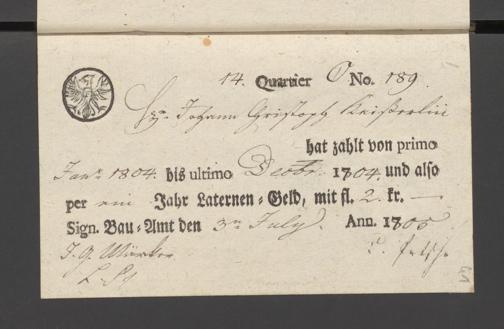 14. Quartier O No. 189.
Hr. Johann Christoph
hat zahlt von primo
Jan. 1804 bis ultimo Decbr. 1704. und also
per ein Jahr Laternen-Geld, mit fl. 2. kr. —
Sign. Bau-Amt den 3n July. Ann. 1705
J. G.